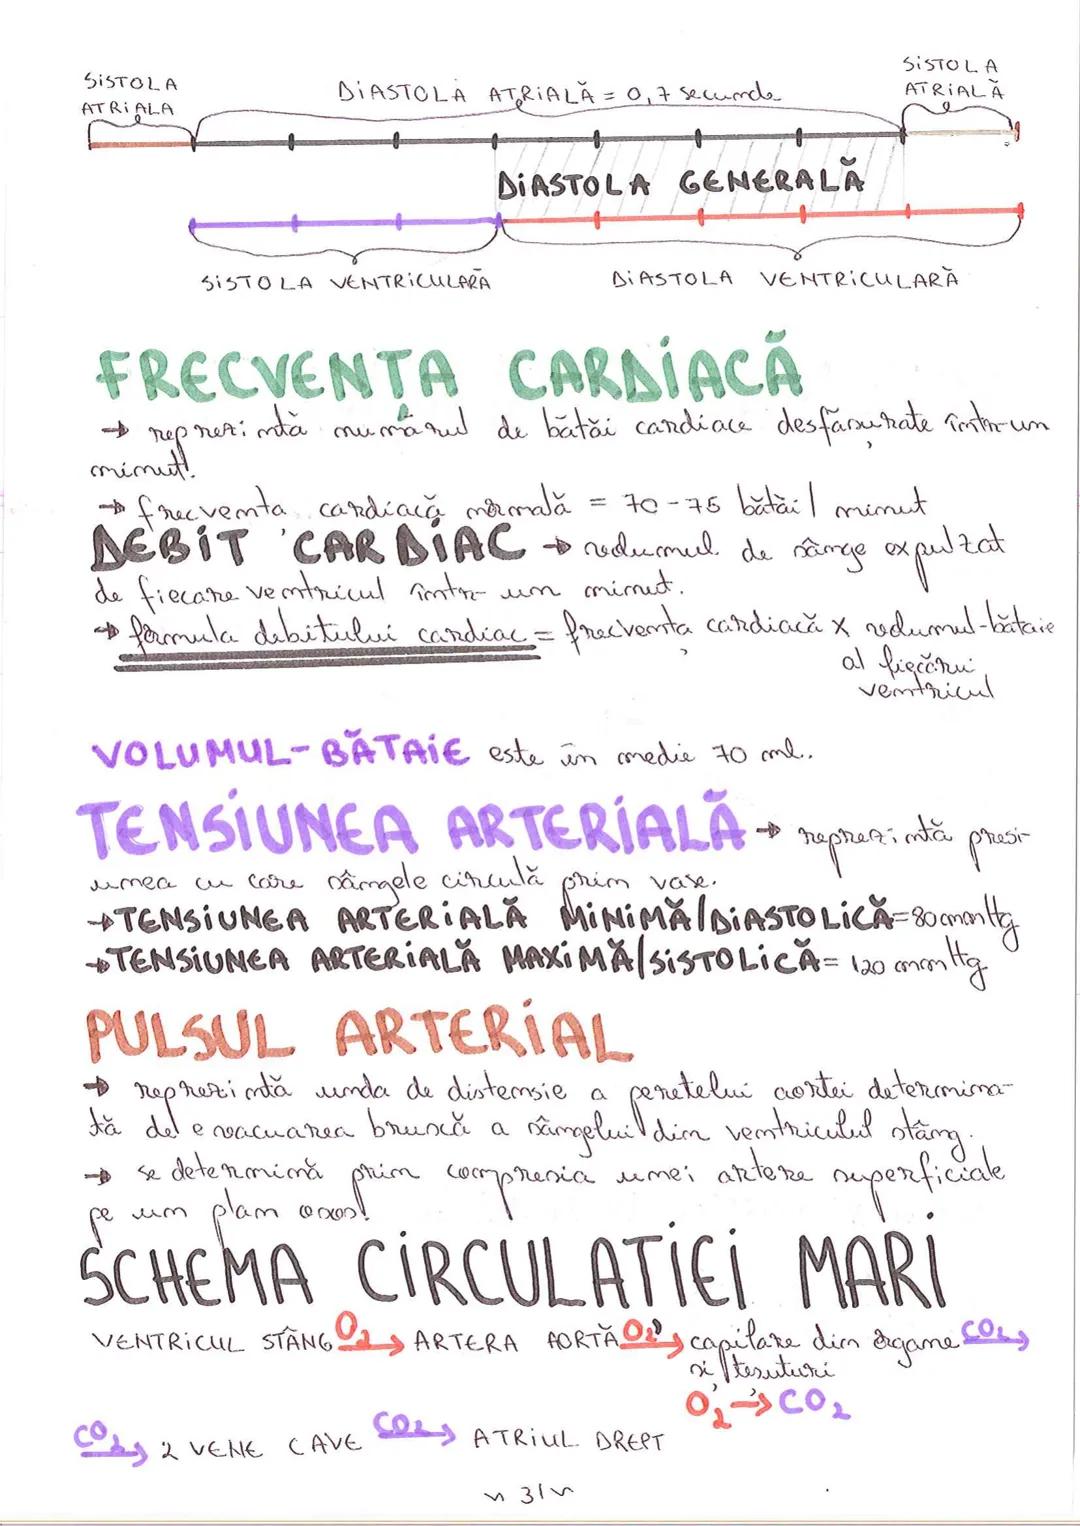 SISTOLA
ATRIALA
DIASTOLA ATRIALĂ = 0,7 secunde
SISTOLA
ATRIALĂ
DIASTOLA GENERALĂ
SISTOLA VENTRICULARĂ
DIASTOLA VENTRICULARĂ
FRECVENȚA CARDIACĂ
→ reprezintă numărul de bătăi cardiace desfășurate într-un
minut!
→ frecventa cardiacă normală = 70-75 bătăi/ minut
DEBIT CARDIAC → volumul de sânge expulzat
de fiecare ventricul într-un minut.
→ formula debitului cardiac = frecvența cardiacă x volumul-bătaie
al fiecărui
ventricul
VOLUMUL-BĂTAIE este în medie 70 ml.
TENSIUNEA ARTERIALĂ → reprezintă presi-
unea cu care sângele circulă prin vase.
→ TENSIUNEA ARTERIALĂ MINIMĂ/DIASTOLICĂ = 80 mmHg
→ TENSIUNEA ARTERIALĂ MAXIMĂ/SISTOLICĂ = 120 mmHg
PULSUL ARTERIAL
→ reprezintă unda de distensie a peretelui aortei determina-
tă de evacuarea bruscă a sângelui din ventriculul stâng.
→ se determină prin compresia unei artere superficiale
pe un plan osos!
SCHEMA CIRCULATIEI MARI
VENTRICUL STÂNG O2→ ARTERA AORTĂ O2→ capilare din organe CO2→
și țesuturi
O2→CO2
CO2→ 2 VENE CAVE CO2→ ATRIUL DREPT
~ 31 ~